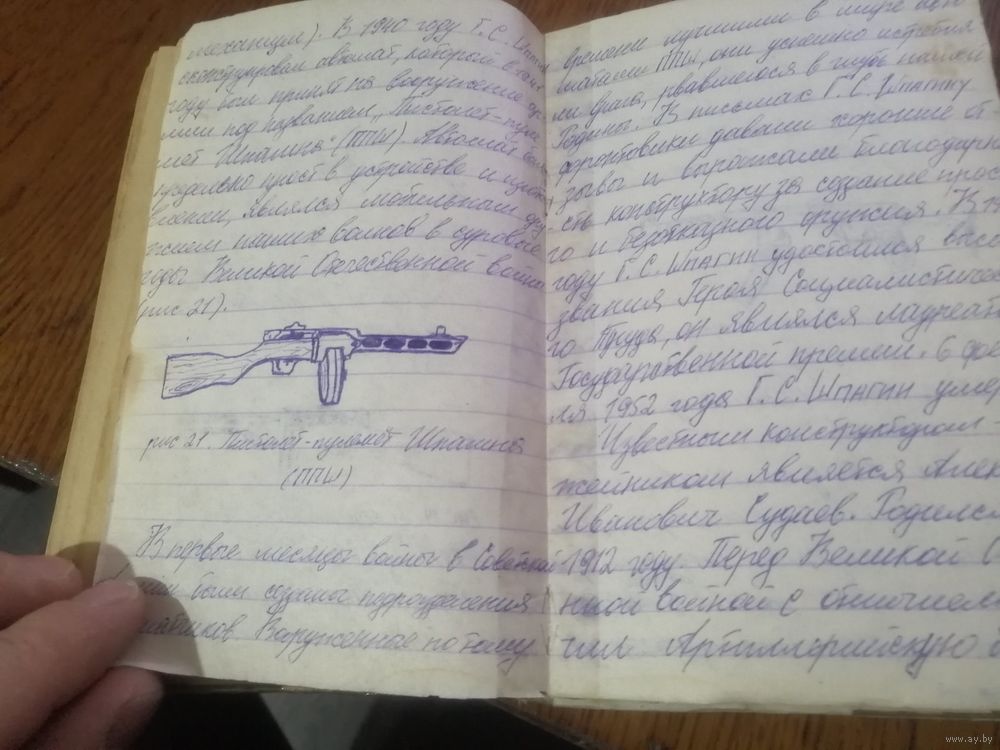 механизм). В 1940 году Г. С. Шпагин
сконструировал автомат, который в том
году был принят на вооружение
под названием „Пистолет-пуле
мет Шпагина" (ППШ). Автомат был
предельно прост в устройстве и
являлся любимым ору
жием наших воинов в суровые
годы Великой Отечественной войны
рис 21).
рис 21. Пистолет-пулемёт Шпагина
(ППШ)
В первые месяцы войны в Советской
были созданы подразделения
Вооруженные по тому
времени лучшими в мире
ППШ, они успешно истребля
ли врага, рвавшегося в глубь нашей
Родины. В письмах Г. С. Шпагину
фронтовики давали хорошие от
зывы и выражали благодарно
сть конструктору за создание прос
го и безотказного оружия. В
году Г. С. Шпагин удостоился высо
звания Героя Социалистичес
го Труда, он являлся лауреат
Государственной премии. 6 фев
ля 1952 года Г. С. Шпагин умер
Известным конструктором-
жейником является Алек
Иванович Судаев. Родился
1912 году. Перед Великой О
нной войной с отличием
чил Артиллерийскую
www.ay.by